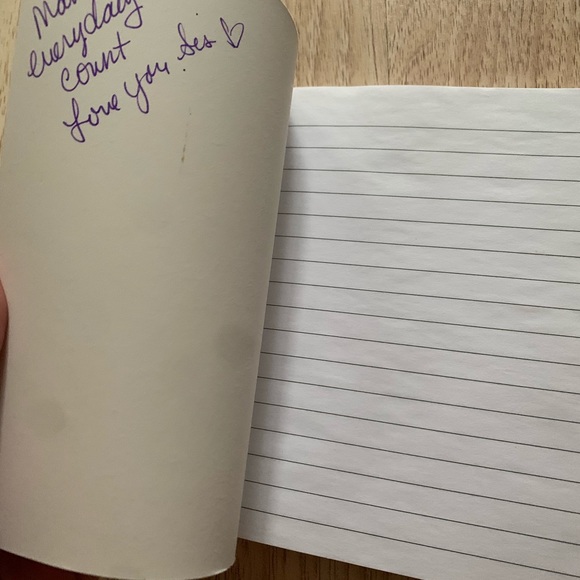 everyday
count
Love you. Sis ♡